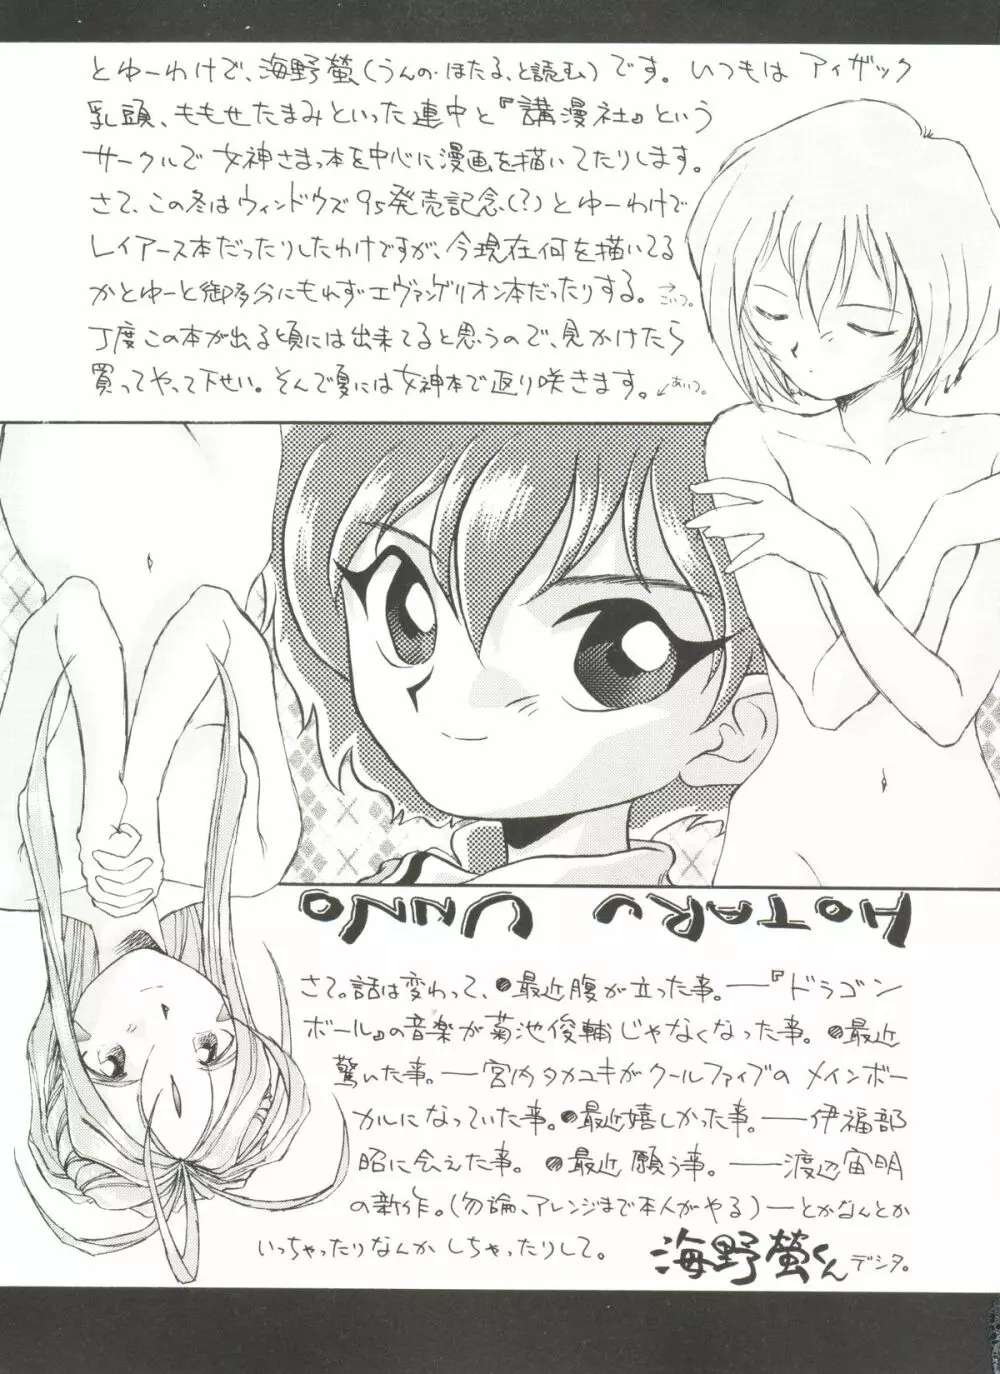 とゆーわけで、海野螢(うんの・ほたる、と読む)です。いつもは アイザック
乳頭、ももせたまみといった連中と『講漫社』という
サークルで女神さまっ本を中心に漫画を描いてたりします。
さて、この冬はウィンドウズ95発売記念(?)とゆーわけで
レイアース本だったりしたわけですが、今現在何を描いてる
かとゆーと御多分にもれずエヴァンゲリオン本だったりする。→こいつ。
丁度この本が出る頃には出来てると思うので、見かけたら
買ってやって下せい。そんで夏には女神本で返り咲きます。↙あいつ。
HOTARU UNNO
さて。話は変わって、●最近腹が立った事。──『ドラゴン
ボール』の音楽が菊池俊輔じゃなくなった事。●最近
驚いた事。──宮内タカユキがクールファイブのメインボー
カルになっていた事。●最近嬉しかった事。──伊福部
昭に会えた事。●最近願う事。──渡辺宙明
の新作。(勿論、アレンジまで本人がやる)──とかなんとか
いっちゃったりなんかしちゃったりして。
海野螢くんデシタ。